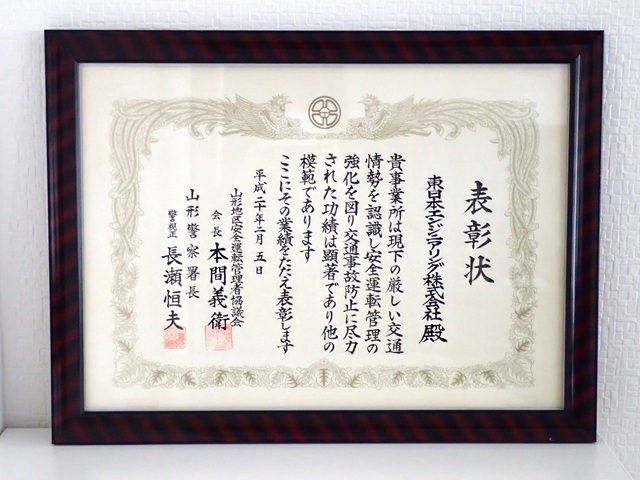 表彰状
東日本エンジニアリング株式会社 殿
貴事業所は現下の厳しい交通
情勢を認識し安全運転管理の
強化を図り交通事故防止に尽力
された功績は顕著であり他の
模範であります
ここにその業績をたたえ表彰します
平成二十年二月五日
山形地区安全運転管理者協議会
会長 本間義衛
山形警察署長
警視正 長瀬恒夫